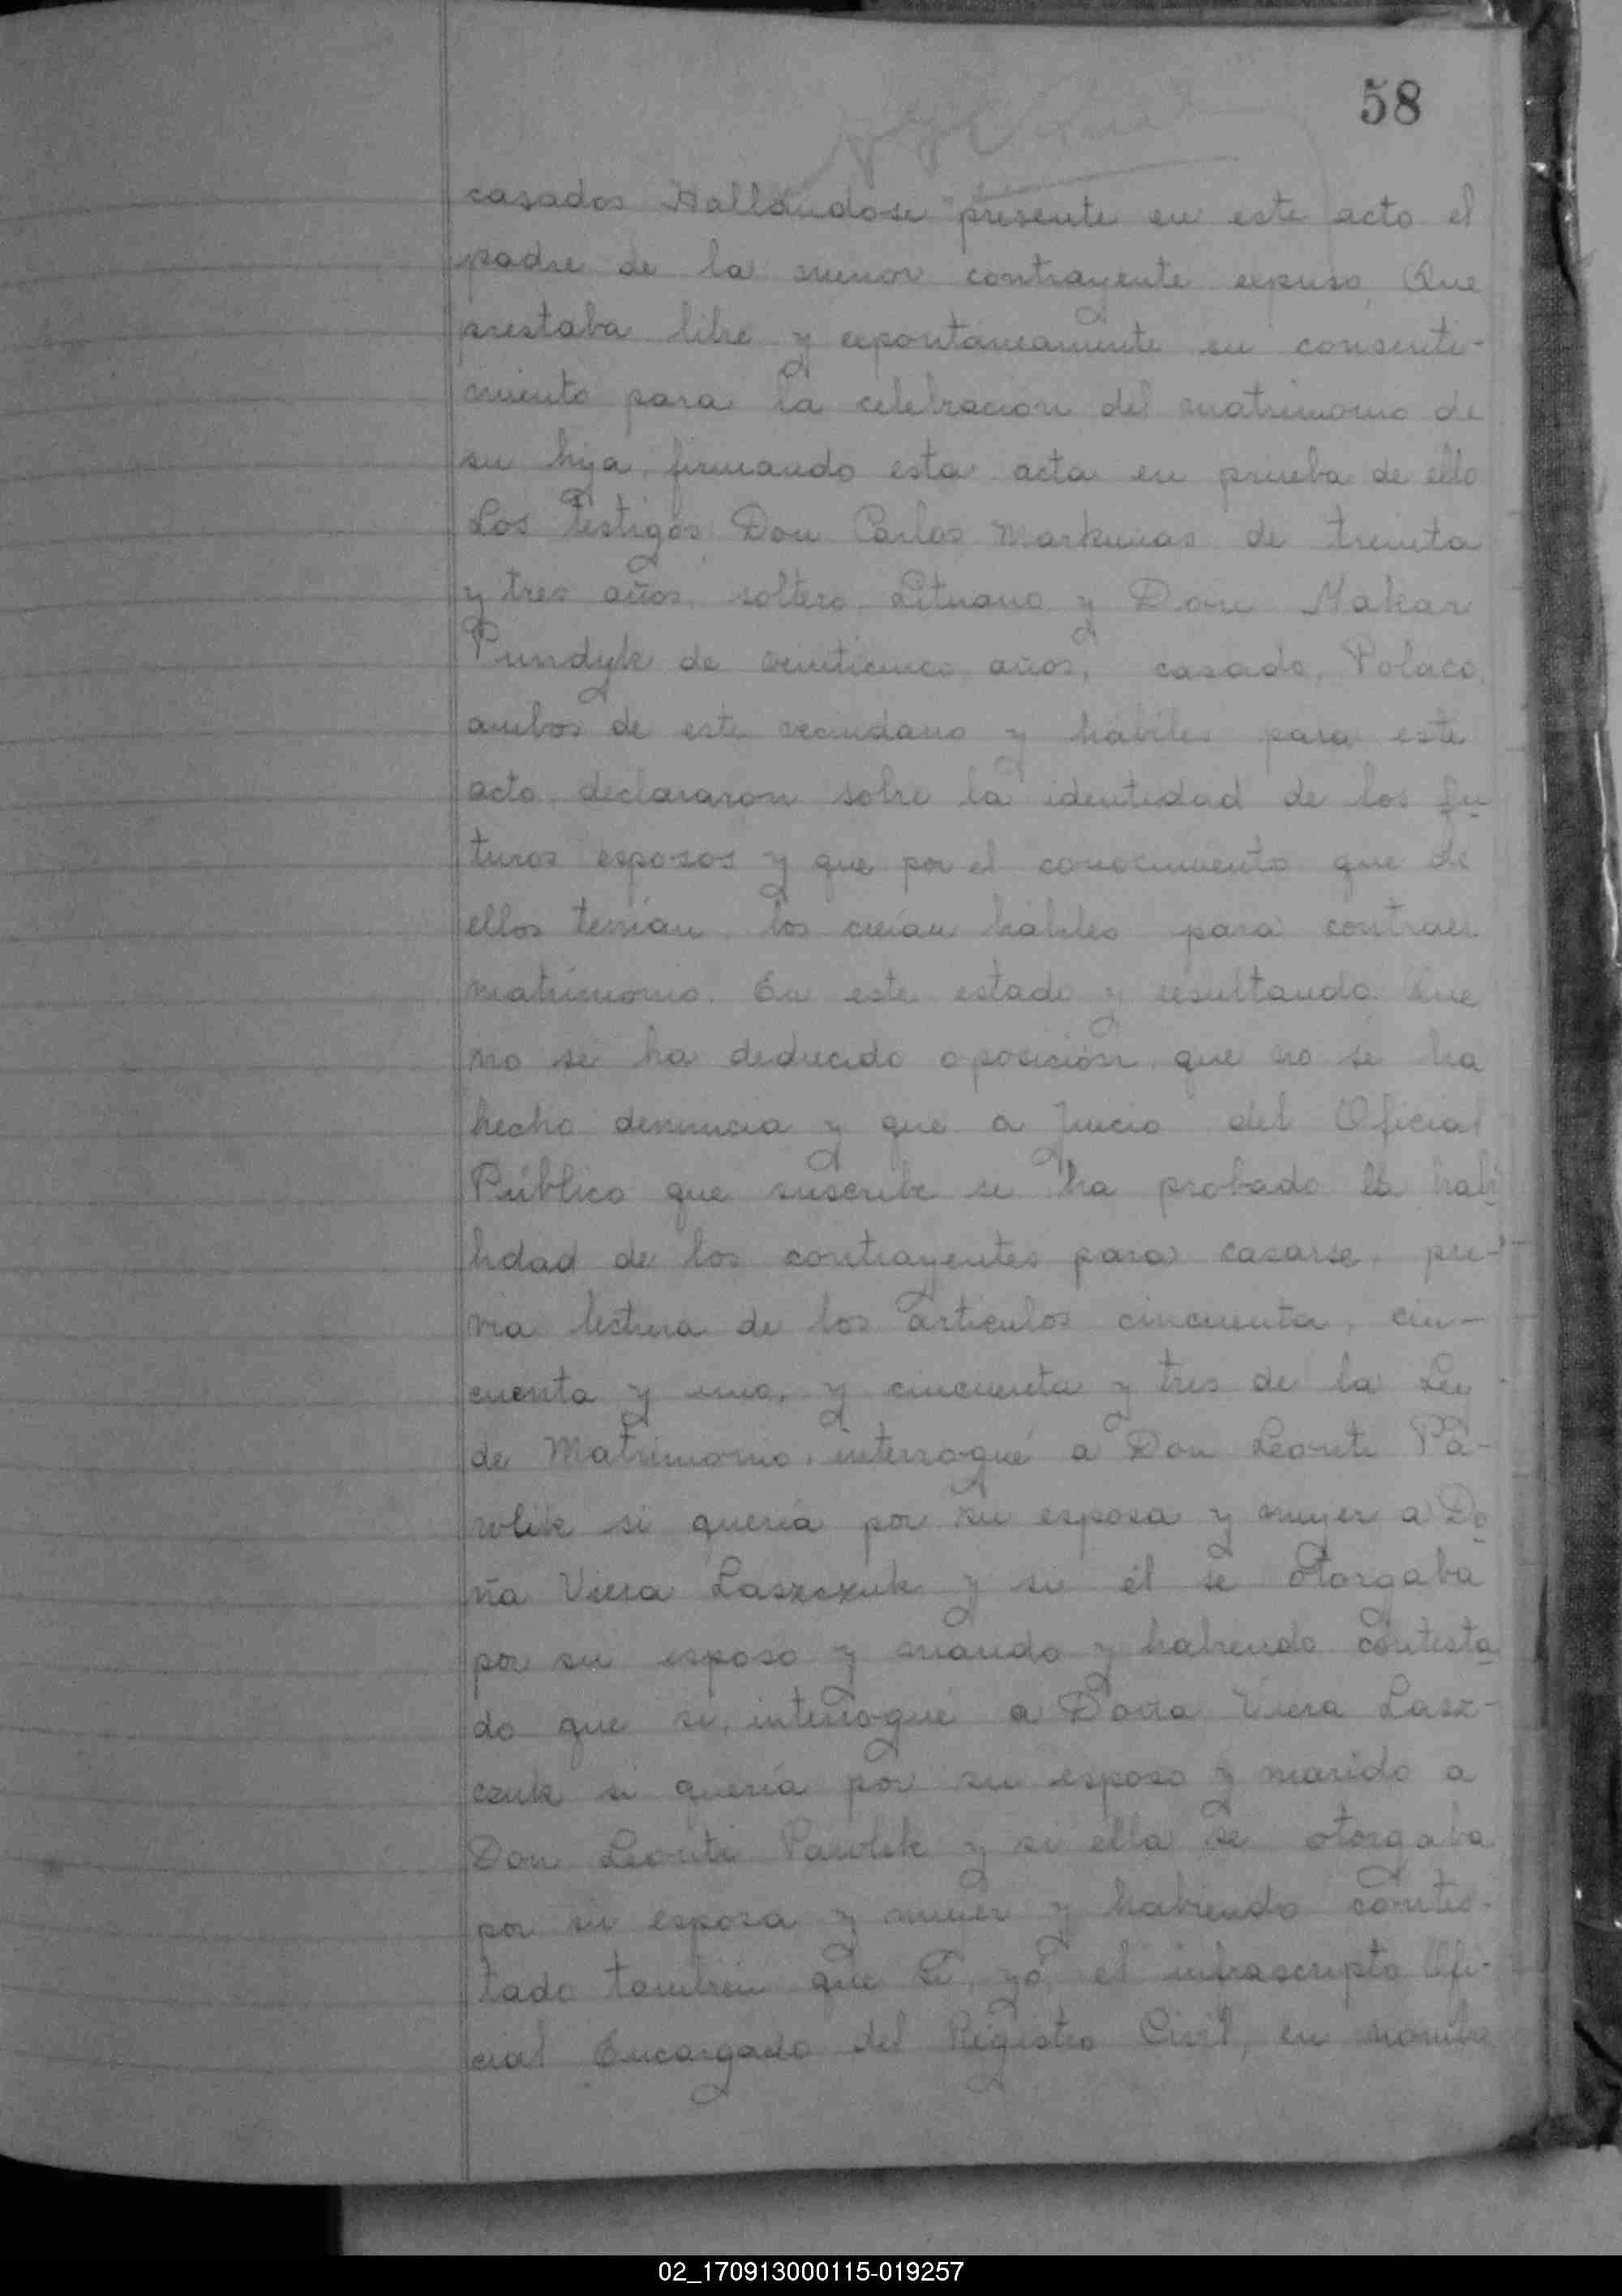 58
casados Hallándose presente en este acto el
padre de la menor contrayente expuso Que
prestaba libre y expontaneamente su consenti-
miento para la celebracion del matrimonio de
su hija, firmando esta acta en prueba de ello
Los testigos Don Carlos Markunas de treinta
y tres años, soltero, Lituano y Don Makar
Pundyk de veinticinco años, casado, Polaco,
ambos de este vecindario y hábiles para este
acto, declararon sobre la identidad de los fu
turos esposos y que por el conocimiento que de
ellos tenían, los creían hábiles para contraer
matrimonio. En este estado y resultando Que
no se ha deducido oposición, que no se ha
hecho denuncia y que a juicio del Oficial
Público que suscribe se ha probado la habi
lidad de los contrayentes para casarse, pre-
via lectura de los artículos cincuenta, cin-
cuenta y uno, y cincuenta y tres de la Ley
de Matrimonio, interrogué a Don Leonti Pa-
wlik si quería por su esposa y mujer a Do
ña Viera Laszczuk y si él se otorgaba
por su esposo y marido y habiendo contesta
do que si, interrogué a Doña Viera Lasz-
czuk si quería por su esposo y marido a
Don Leonti Pawlik y si ella se otorgaba
por su esposa y mujer y habiendo contes-
tado también que si, yó, el infrascripto Ofi-
cial Encargado del Registro Civil, en nombre
02_170913000115-019257